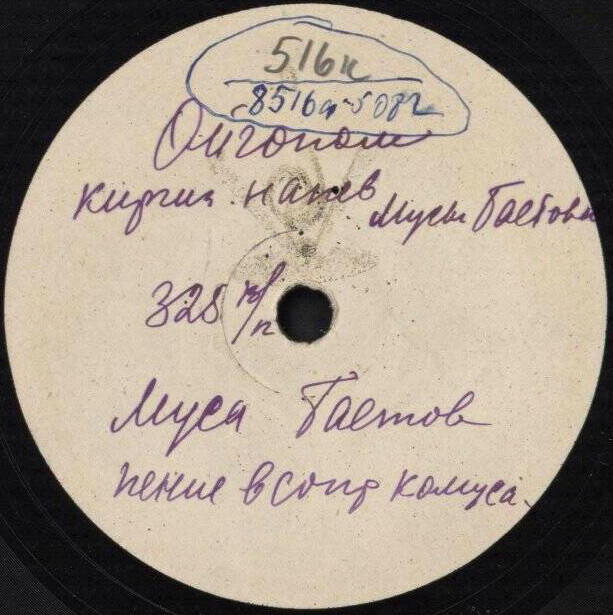 516к
8516а-5082
Ойгопом
киргиз. напев Мусы Баетова
325 н/п
Муса Баетов
пение в сопр комуса.